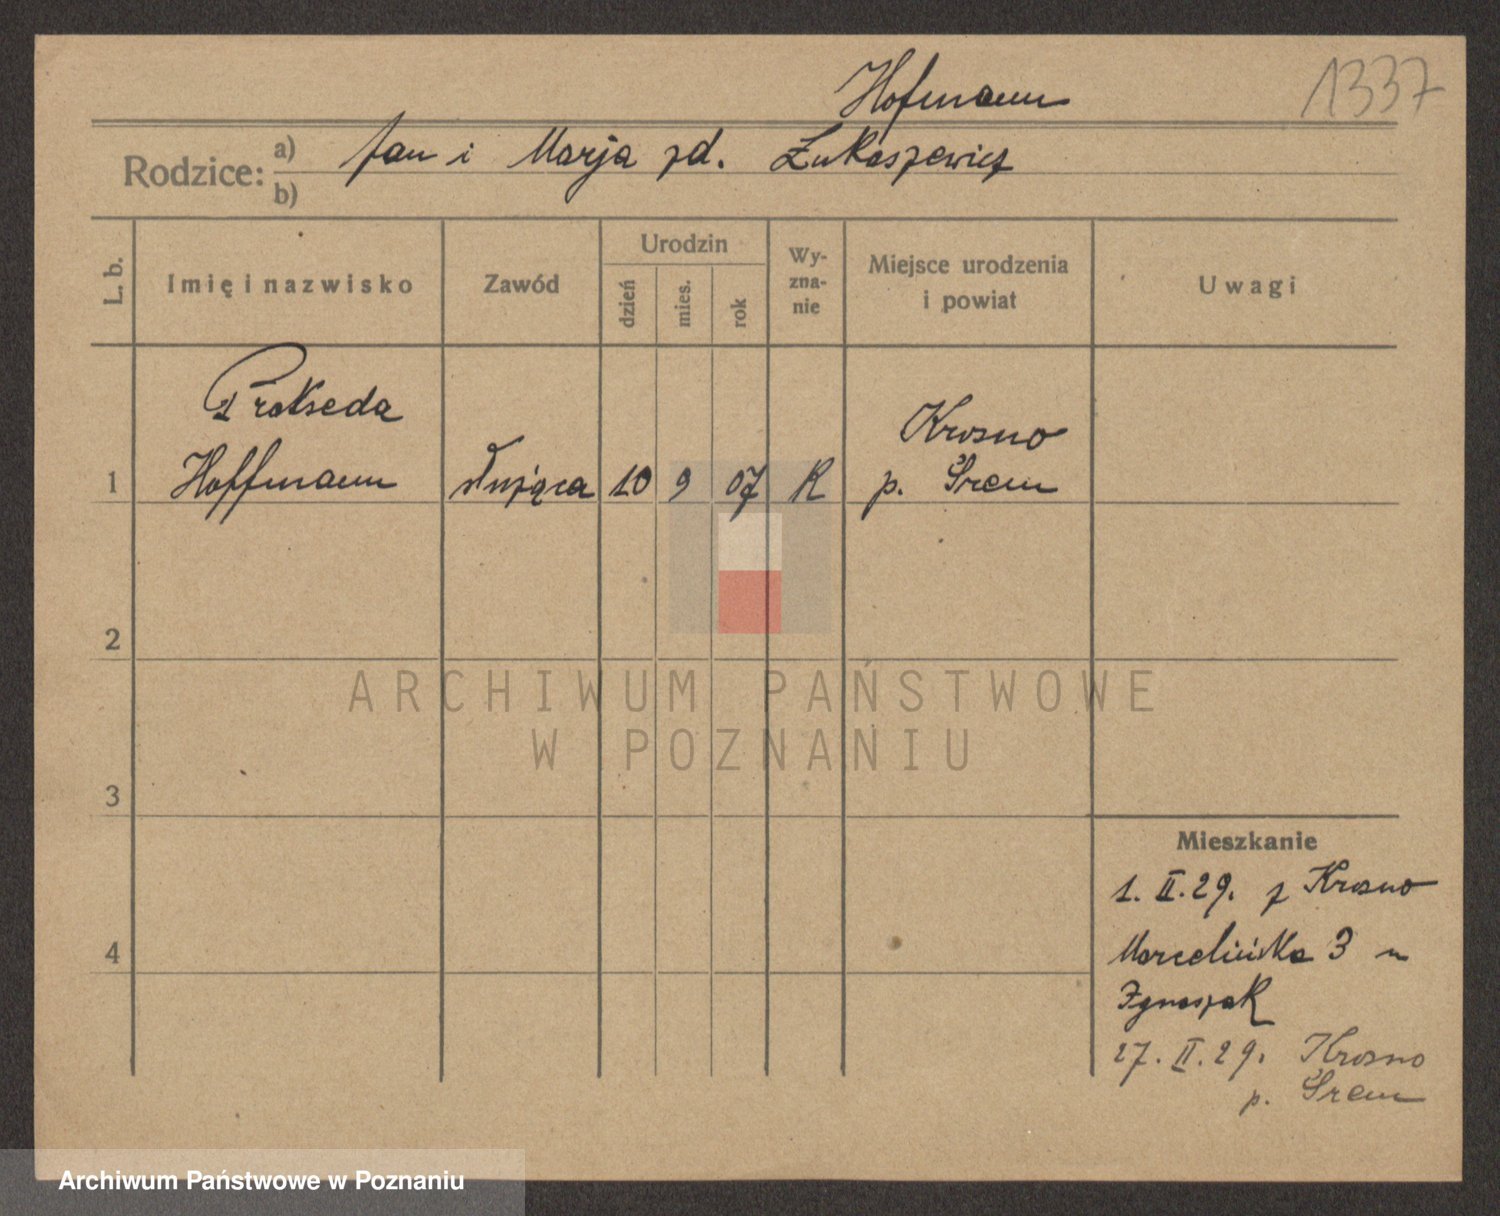 Hofmann
1337
Rodzice: a) Jan i Marja zd. Łukaszewicz
b)
L. b.
Imię i nazwisko
Zawód
Urodzin
dzień
mies.
rok
Wy-
zna-
nie
Miejsce urodzenia
i powiat
Uwagi
Prakseda
Hoffmann
Krosno
1
służąca 10 9 07 R p. Śrem
2
3
4
Mieszkanie
1. II. 29. z Krosno
Marcelińska 3 u
Ignaszak
27. II. 29. Krosno
p. Śrem
ARCHIWUM PAŃSTWOWE
W POZNANIU
Archiwum Państwowe w Poznaniu